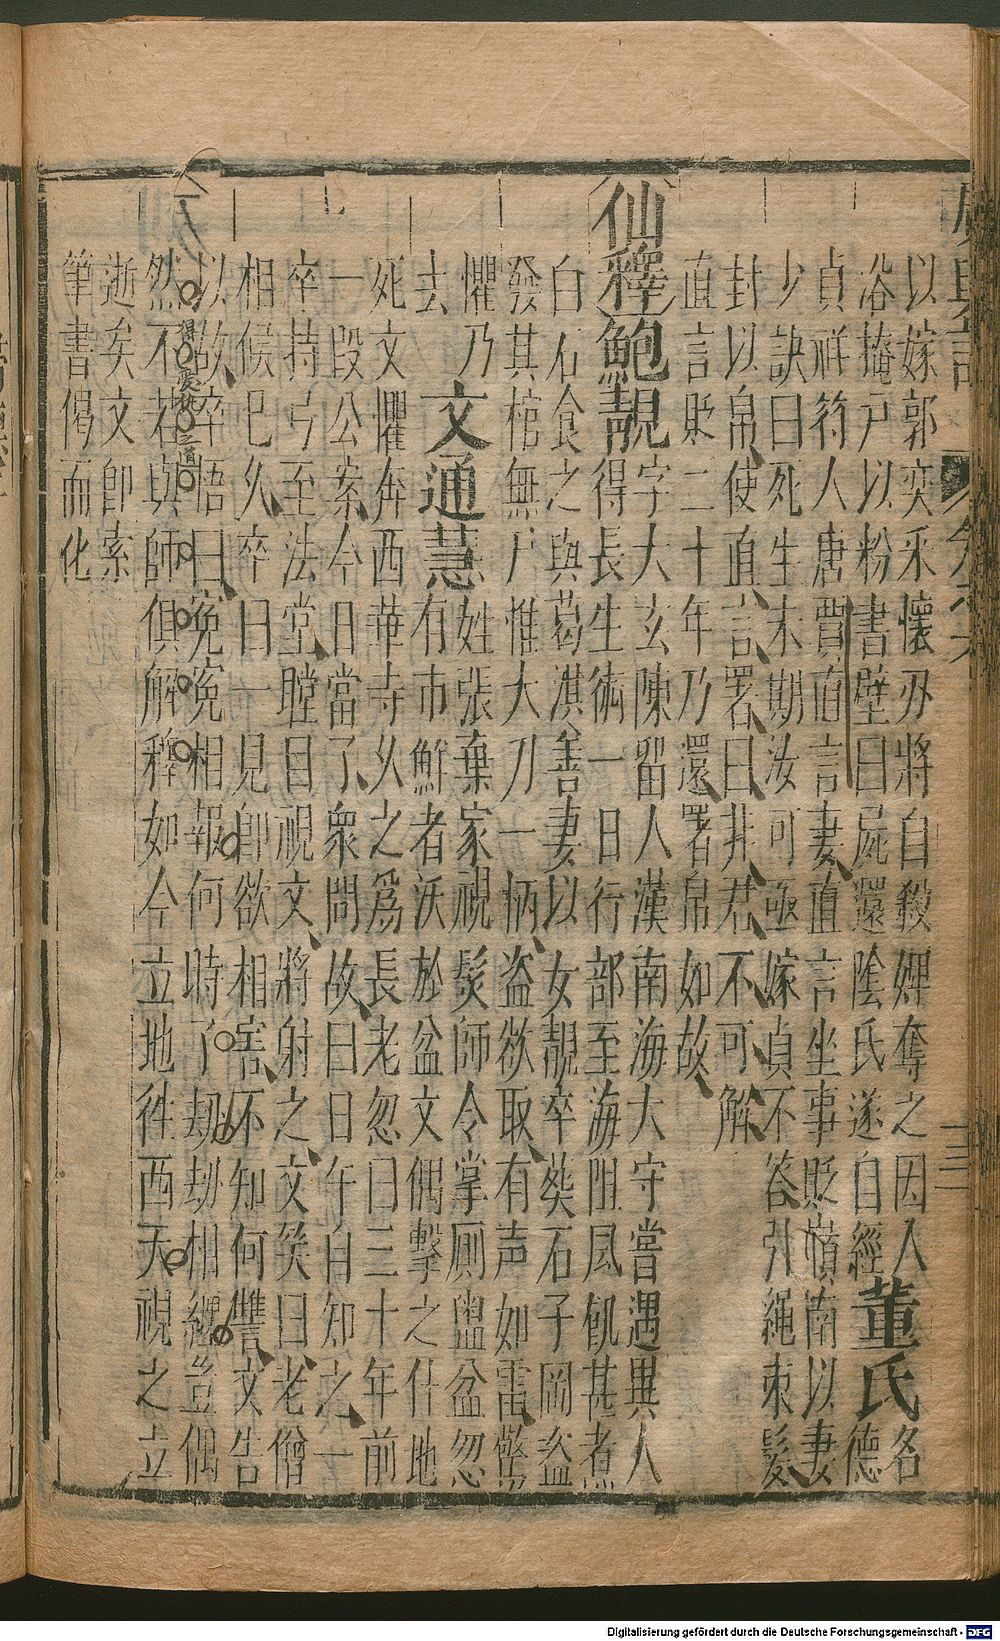 以嫁郭奕采懷刃將自殺婢奪之因入
浴掩戶以粉書壁曰屍還陰氏遂自經 董氏 名德
貞祥符人唐賈直言妻直言坐事貶嶺南以妻
少訣曰死生未期汝可亟嫁貞不答引繩束髮
封以帛使直言署曰非君不可解
直言貶二十年乃還署帛如故
仙釋鮑靚 字大玄陳留人漢南海大守嘗遇異人
得長生術一日行部至海阻風飢甚煮
白石食之與葛淇善妻以女靚卒葬石子岡盜
發其棺無尸惟大刀一柄盜欲取有声如雷驚
懼乃去 文通慧 姓張棄家視髮師令掌厠盥盆忽
有市鮮者沃於盆文偶擊之什地
死文懼奔西華寺久之爲長老忽曰三十年前
一段公案今日當了衆問故曰日午自知之一
卒持弓至法堂瞠目視文將射之文笑曰老僧
相候巳久卒曰一見卽欲相害不知何讐文告
以故卒悟曰寃寃相報何時了劫劫相纏豈偶
然不若與師俱解釋如今立地徃西天視之立
逝矣文卽索
筆書偈而化
得
之道
Digitalisierung gefördert durch die Deutsche Forschungsgemeinschaft - DFG